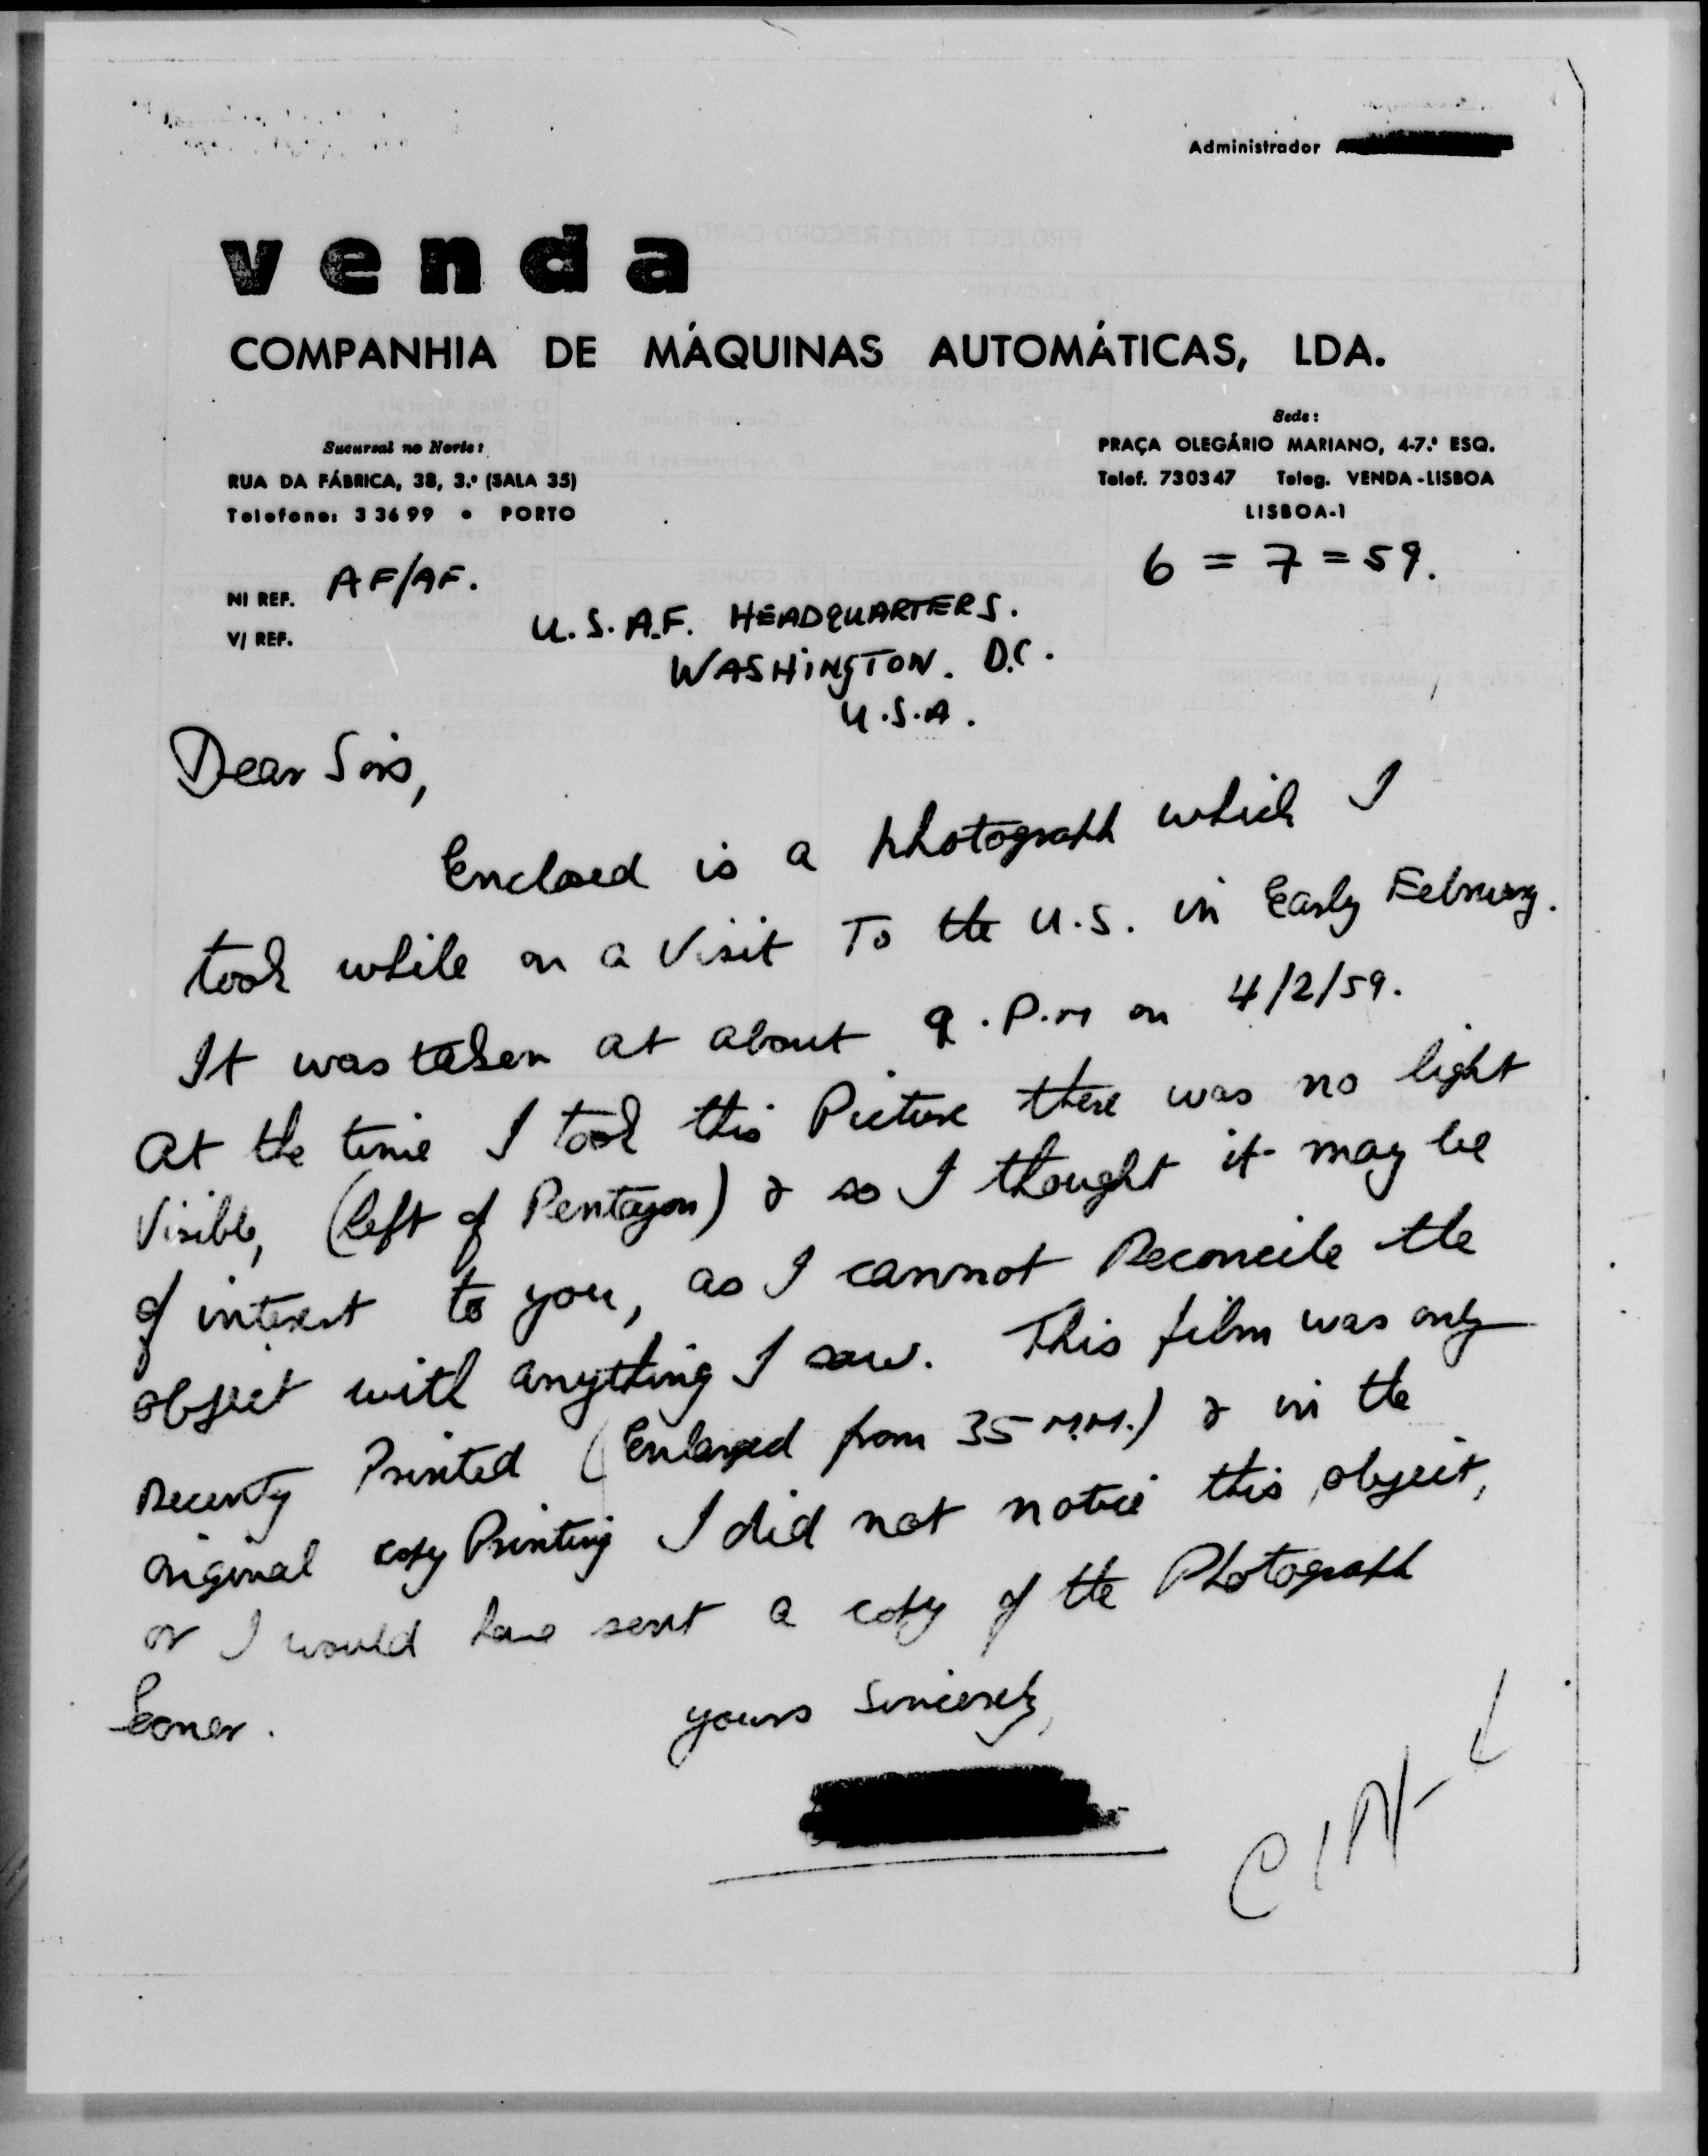 Administrador
venda
COMPANHIA DE MÁQUINAS AUTOMÁTICAS, LDA.
Sucursal no Norte:
RUA DA FÁBRICA, 38, 3.º (SALA 35)
Telefone: 33699 • PORTO
Sede:
PRAÇA OLEGÁRIO MARIANO, 4-7.º ESQ.
Telef. 730347 Teleg. VENDA-LISBOA
LISBOA-1
6 = 7 = 59.
N/ REF. AF/AF.
V/ REF.
U.S.A.F. HEADQUARTERS.
WASHINGTON. D.C.
U.S.A.
Dear Sirs,
Enclosed is a photograph which I
took while on a Visit To the U.S. in Early February.
It was taken at about 9.P.M on 4/2/59.
At the time I took this Picture there was no light
Visible, (left of Pentagon) & so I thought it may be
of interest to you, as I cannot Reconcile the
object with anything I saw. This film was only
Recently Printed (Enlarged from 35 M.M.) & in the
original copy Printing I did not notice this object,
or I would have sent a copy of the Photograph
Sooner.
yours Sincerely,